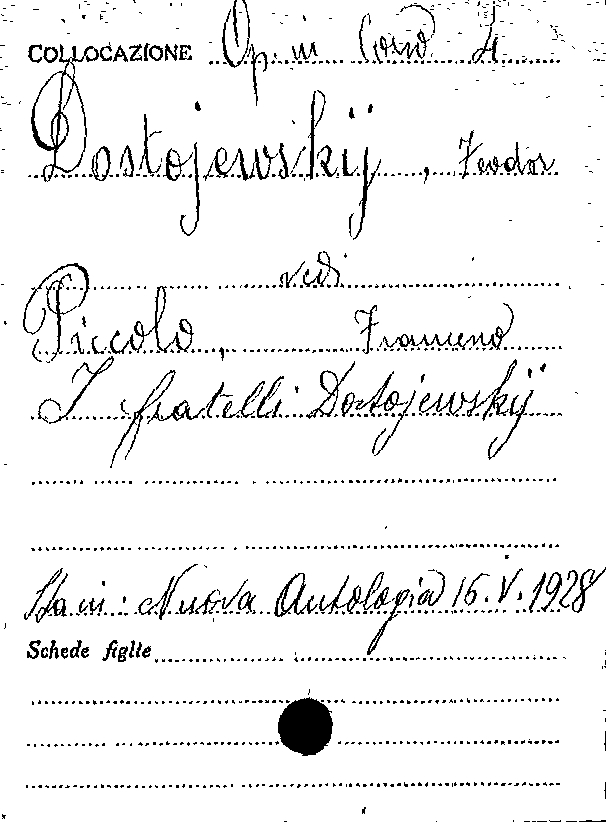 COLLOCAZIONE Op. in Cons 4
Dostojewskÿ, Feodor
vedi
Piccolo, Francesco
I fratelli Dostojewskÿ
Sta in: Nuova Antologia 16.V.1928
Schede figlie